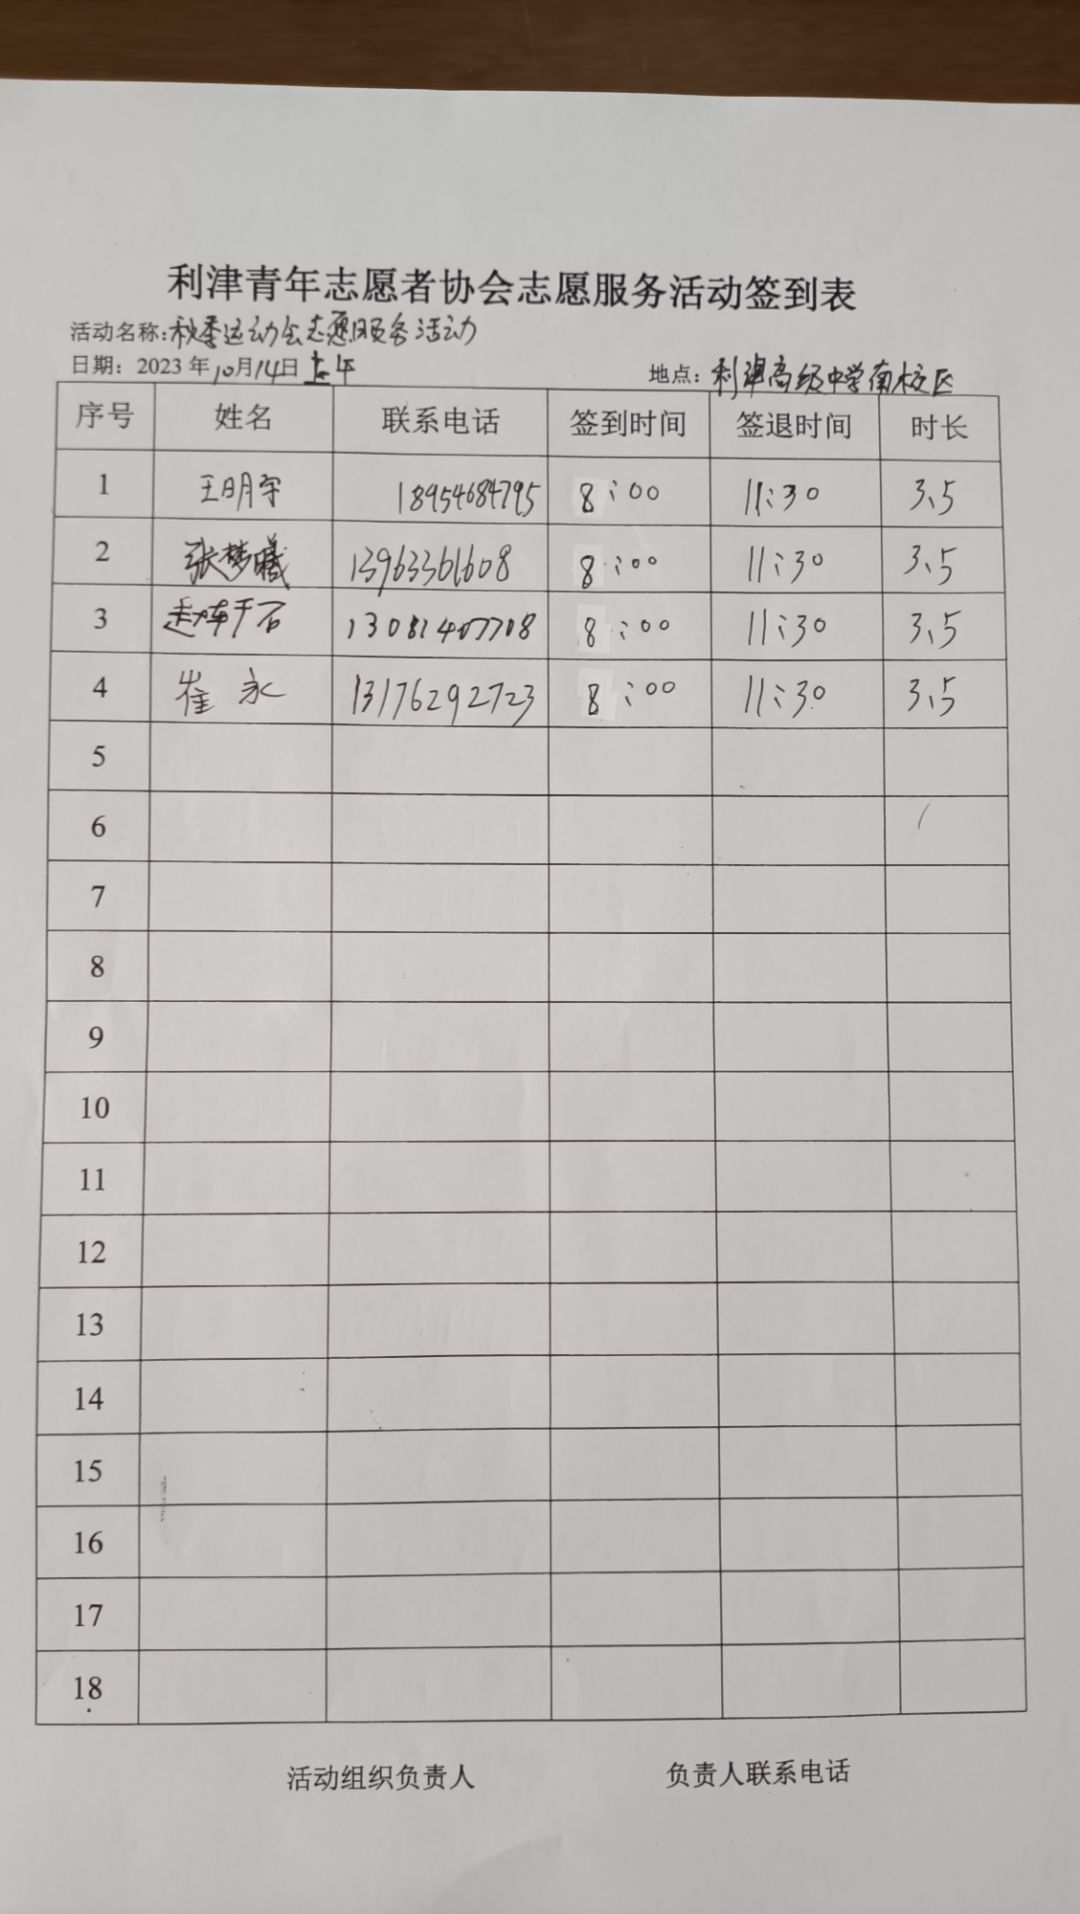 利津青年志愿者协会志愿服务活动签到表
活动名称:秋季运动会志愿服务活动
日期：2023年10月14日上午 地点：利津高级中学南校区
序号 姓名 联系电话 签到时间 签退时间 时长
1 王明宇 18954684795 8:00 11:30 3.5
2 张梦曦 13963361608 8:00 11:30 3.5
3 8:00 11:30 3.5
4 崔永 13176292723 8:00 11:30 3.5
5
6
7
8
9
10
11
12
13
14
15
16
17
18
活动组织负责人 负责人联系电话